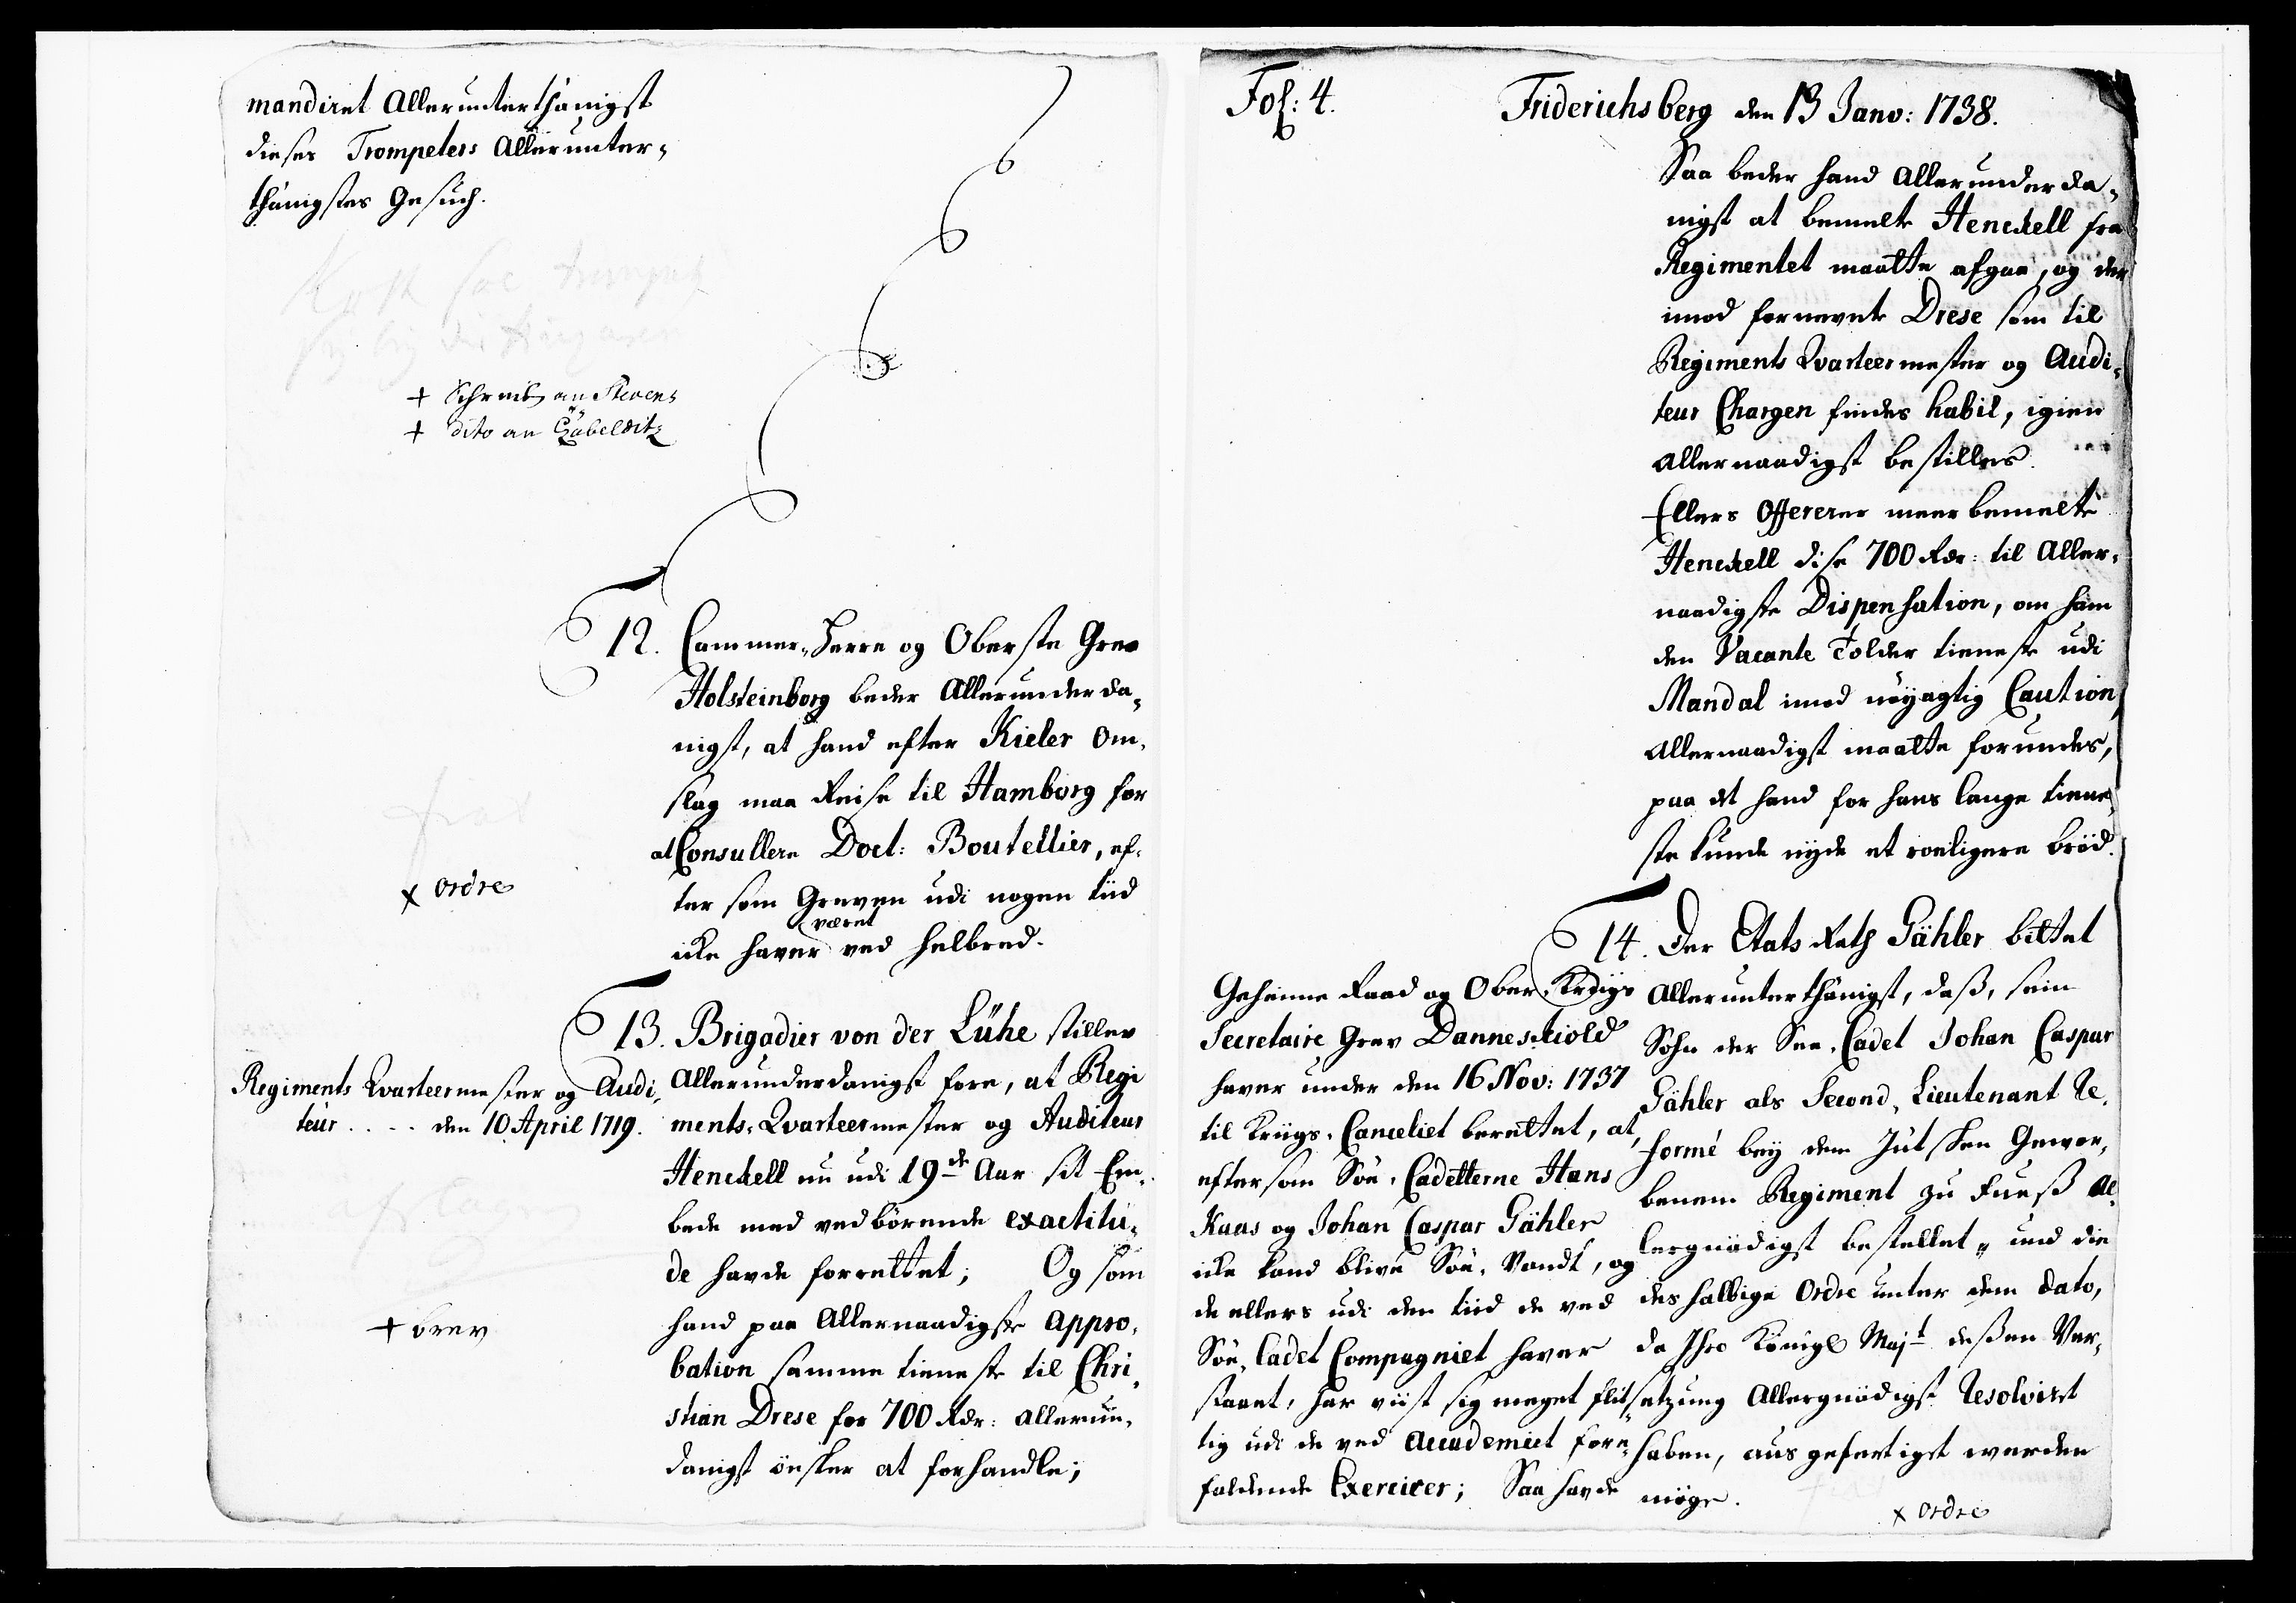 mandiret Allerunterthänigst
dieses Trompeters Allerunter-
thänigstes Gesuch.
+ Schreib an Stevens
+ dito an Gabelditz
12. Cammer-Herre og Oberste Grev
Holsteinborg beder Allerunderda-
nigst, at hand efter Kieler Om-
slag maa Reise til Hamborg for
at Consullere Doct: Boutellier, ef-
ter som Greven udi nogen tiid
icke haver været ved helbred.
x ordre
13. Brigadier von der Lühe stiller
Allerunderdanigst fore, at Regi
ments-Qvarteermester og Auditeur
Henckell nu udi 19de Aar sit Em-
bede med vedbörende exactitu-
de havde forrettet; Og som
hand paa Allernaadigste appro-
bation samme tieneste til Chri-
stian Drese for 700 Rdr: allerun-
danigst önsker at forhandle;
Regiments Qvarteermester og Audi-
teur .... den 10 April 1719.
+ brev
Fol: 4.
Friderichsberg den 13 Janv: 1738.
Saa beder hand Allerunderda-
nigst at bemelte Henckell fra
Regimentet maatte afgaa, og der
imod fornevnte Drese som til
Regiments Qvarteermester og Audi-
teur Chargen findes habil, igien
allernaadigst bestilles.
Ellers Offererer meerbemelte
Henckell dise 700 Rdr: til Aller-
naadigste Dispensation, om ham
den Vacante Tolder tieneste udi
Mandal imod nöyagtig Caution
Allernaadigst maatte forundes,
paa det hand for hans lange tiene-
ste kunde nyde et roeligere bröd.
14. Der Etats Rath Gähler bittet
Allerunterthänigst, daß, sein
Sohn der See-Cadet Johan Caspar
Gähler als Second-Lieutenant Re-
formé bey dem Jütschen Gewor-
benem Regiment zu Fueß al-
lergnädigst bestellet, und die
deshalbige Ordre unter dem dato,
da Ihro Königl Majt deßen Ver-
setzung Allergnädigst Resolviret
haben, ausgefertiget werden
möge.
x ordre
Geheime Raad og Ober-Krigs
Secretaire Grev Danneskiold
haver under den 16 Nov: 1737
til Krigs-Canceliet berettet, at,
eftersom Söe-Cadetterne Hans
Kaas og Johan Caspar Gähler
icke kand blive Söe-Vandt, og
de ellers udi den tiid de ved
Söe-Cadet Compagniet haver
staaet, har viist sig meget flit-
tig udi de ved Academiet fore-
faldende Exercicer; Saa havde